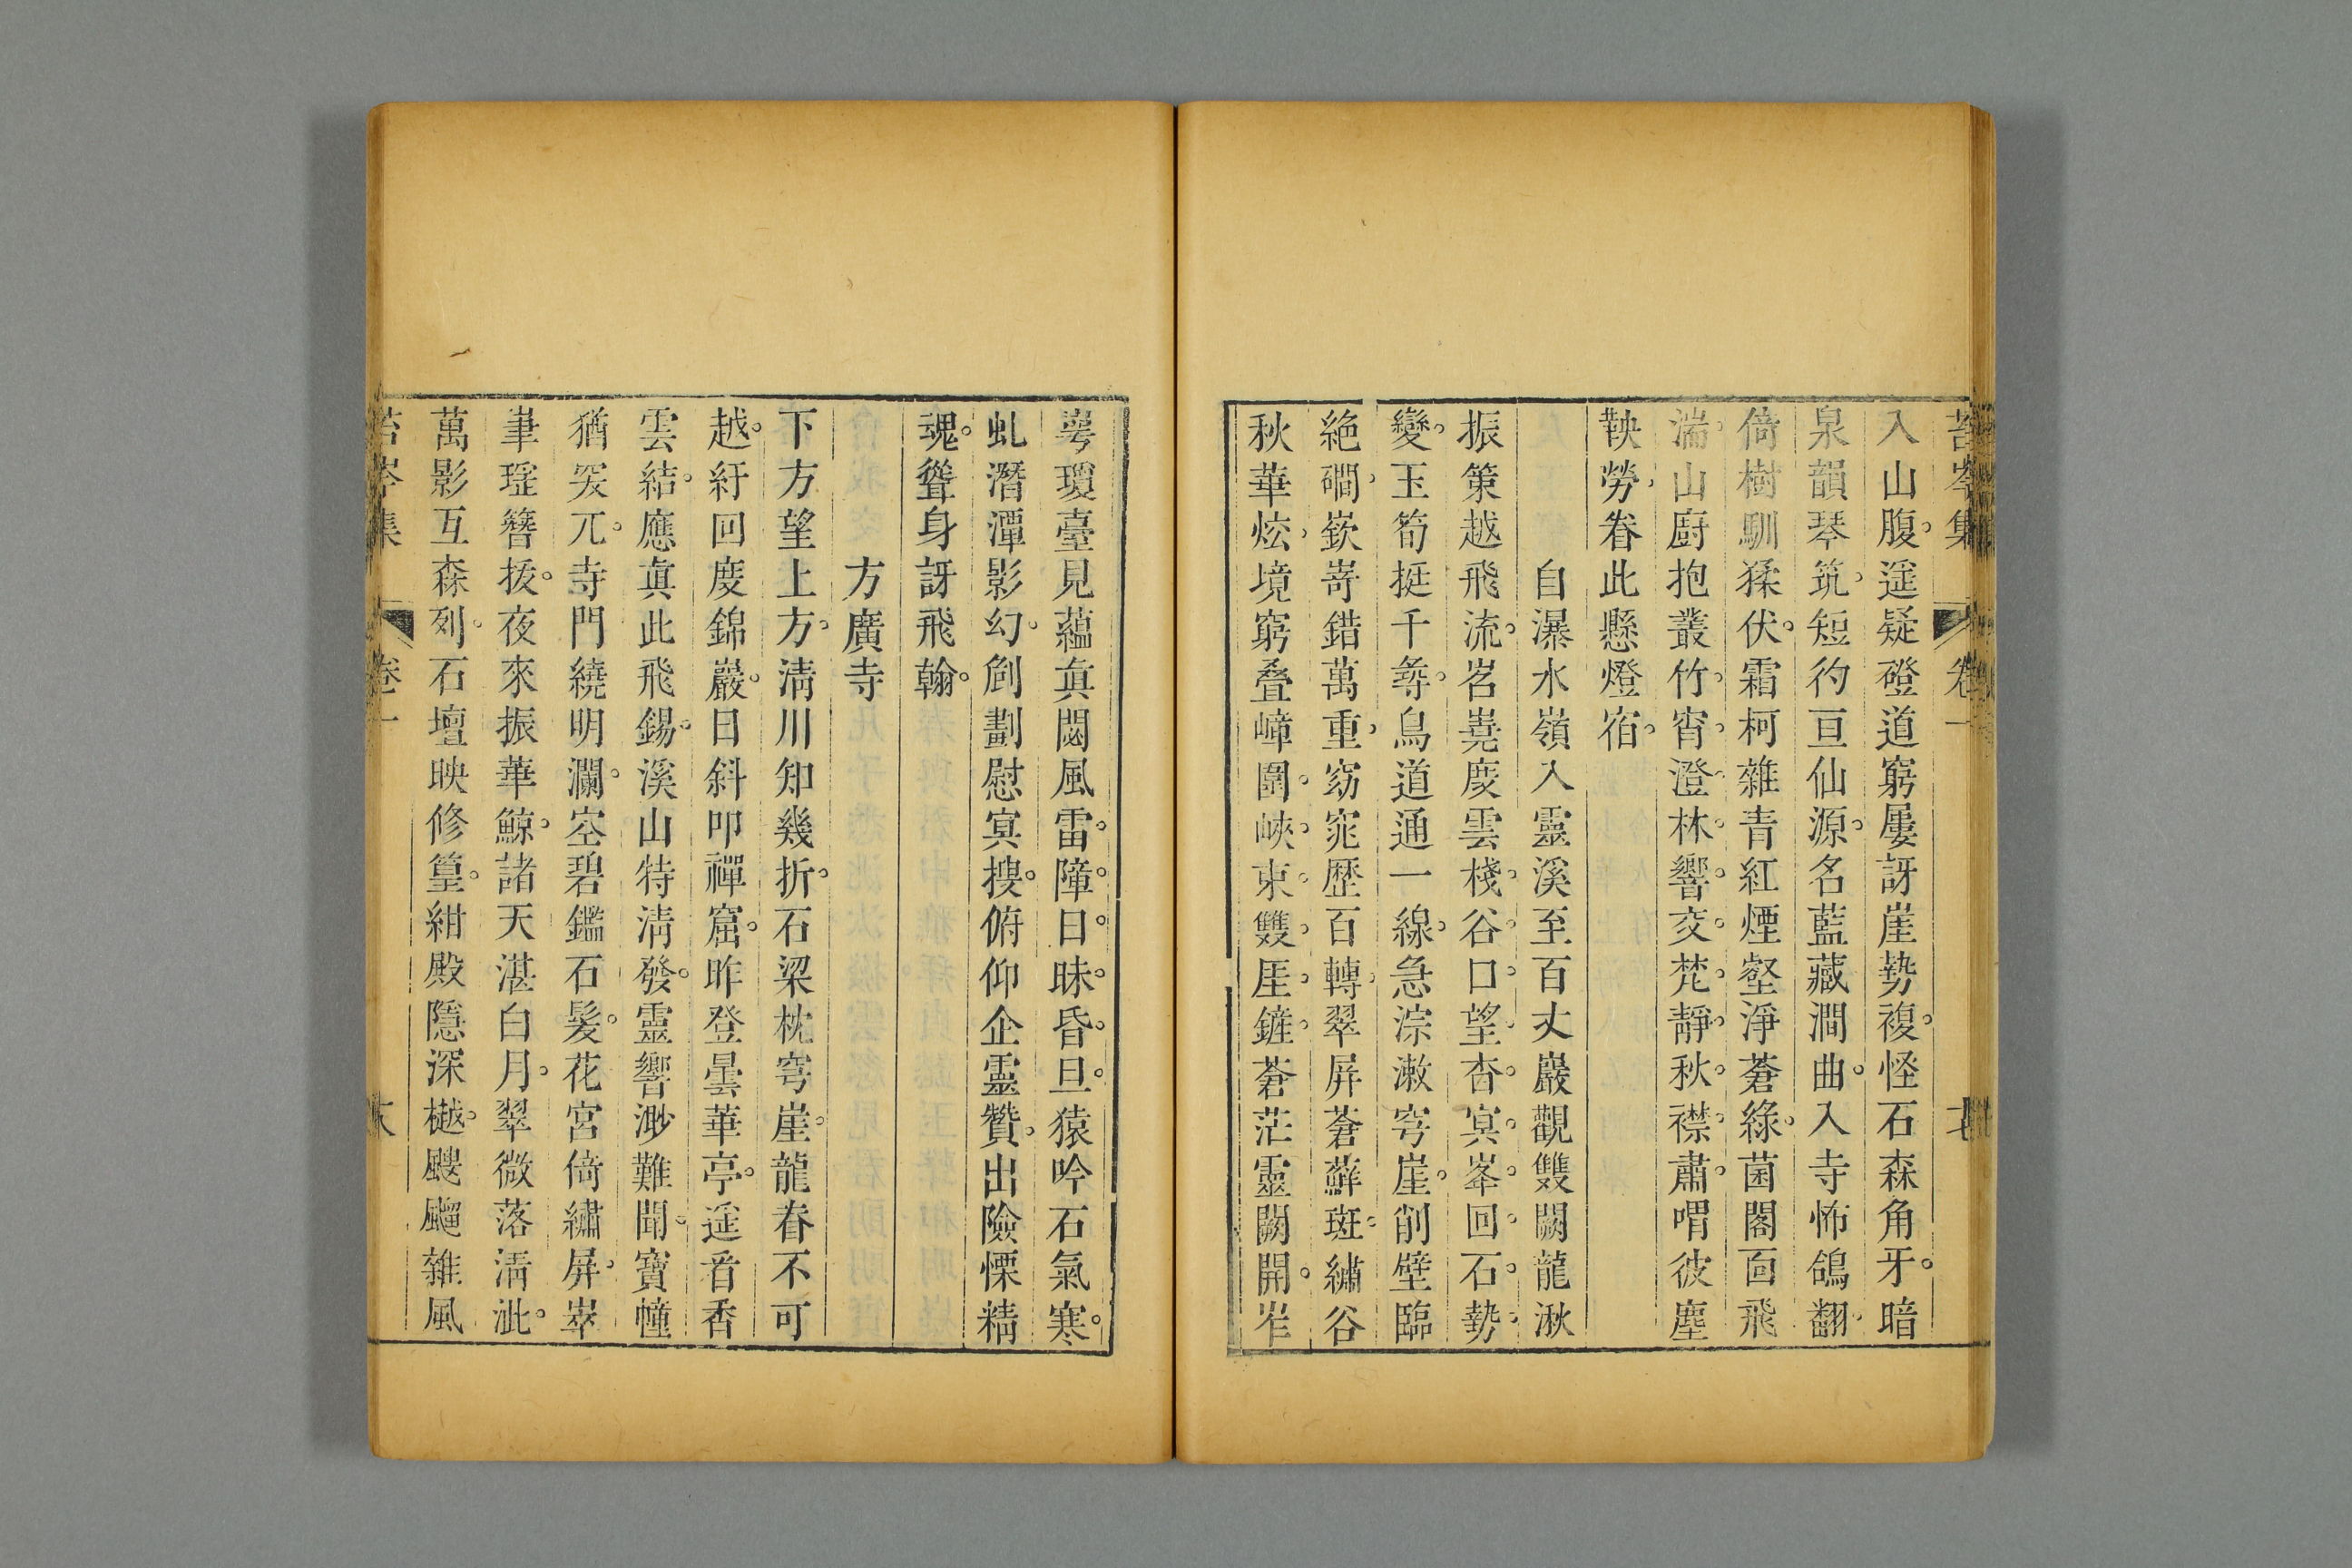 苔岑集 卷一
入山腹。遥疑磴道窮屢訝崖勢複。怪石森角牙。暗
泉韻琴筑。短彴亘仙源。名藍藏澗曲。入寺怖鴿翻。
倚樹馴猱伏。霜柯雜青紅煙壑淨蒼綠。菌閣面飛
湍。山廚抱叢竹。宵澄林響交。梵靜秋襟肅。喟彼塵
鞅勞。眷此懸燈宿。
自瀑水嶺入靈溪至百丈巖觀雙闕龍湫
振策越飛流。岧嶤度雲棧。谷口望杳冥。峯回石勢
變。玉筍挺千尋。鳥道通一線。急淙漱穹崖。削壁臨
絶磵。嶔嵜錯萬重。窈窕歷百轉。翠屏蒼蘚斑。繡谷
秋華炫。境窮叠嶂圍。峽束雙厓鏟。蒼茫靈闕開。岞
崿瓊臺見蘊眞閟風雷。障日昧昏旦。猿吟石氣寒。
虬潛潭影幻。創劃慰冥搜。俯仰企靈贊。出險慄精
魂。聳身訝飛翰。
方廣寺
下方望上方。淸川知幾折。石梁枕穹崖。龍脊不可
越。紆回度錦巖。日斜叩禪窟。昨登曇華亭。遥香
雲結。應眞此飛錫。溪山特淸發。靈響渺難聞。寶幢
猶突兀。寺門繞明瀾。空碧鑑石髪。花宮倚繡屏。崒
嵂瑤簪拔。夜來振華鯨。諸天湛白月。翠微落淸泚。
萬影互森列。石壇映修篁。紺殿隱深樾。颼飀雜風
苔岑集 卷一